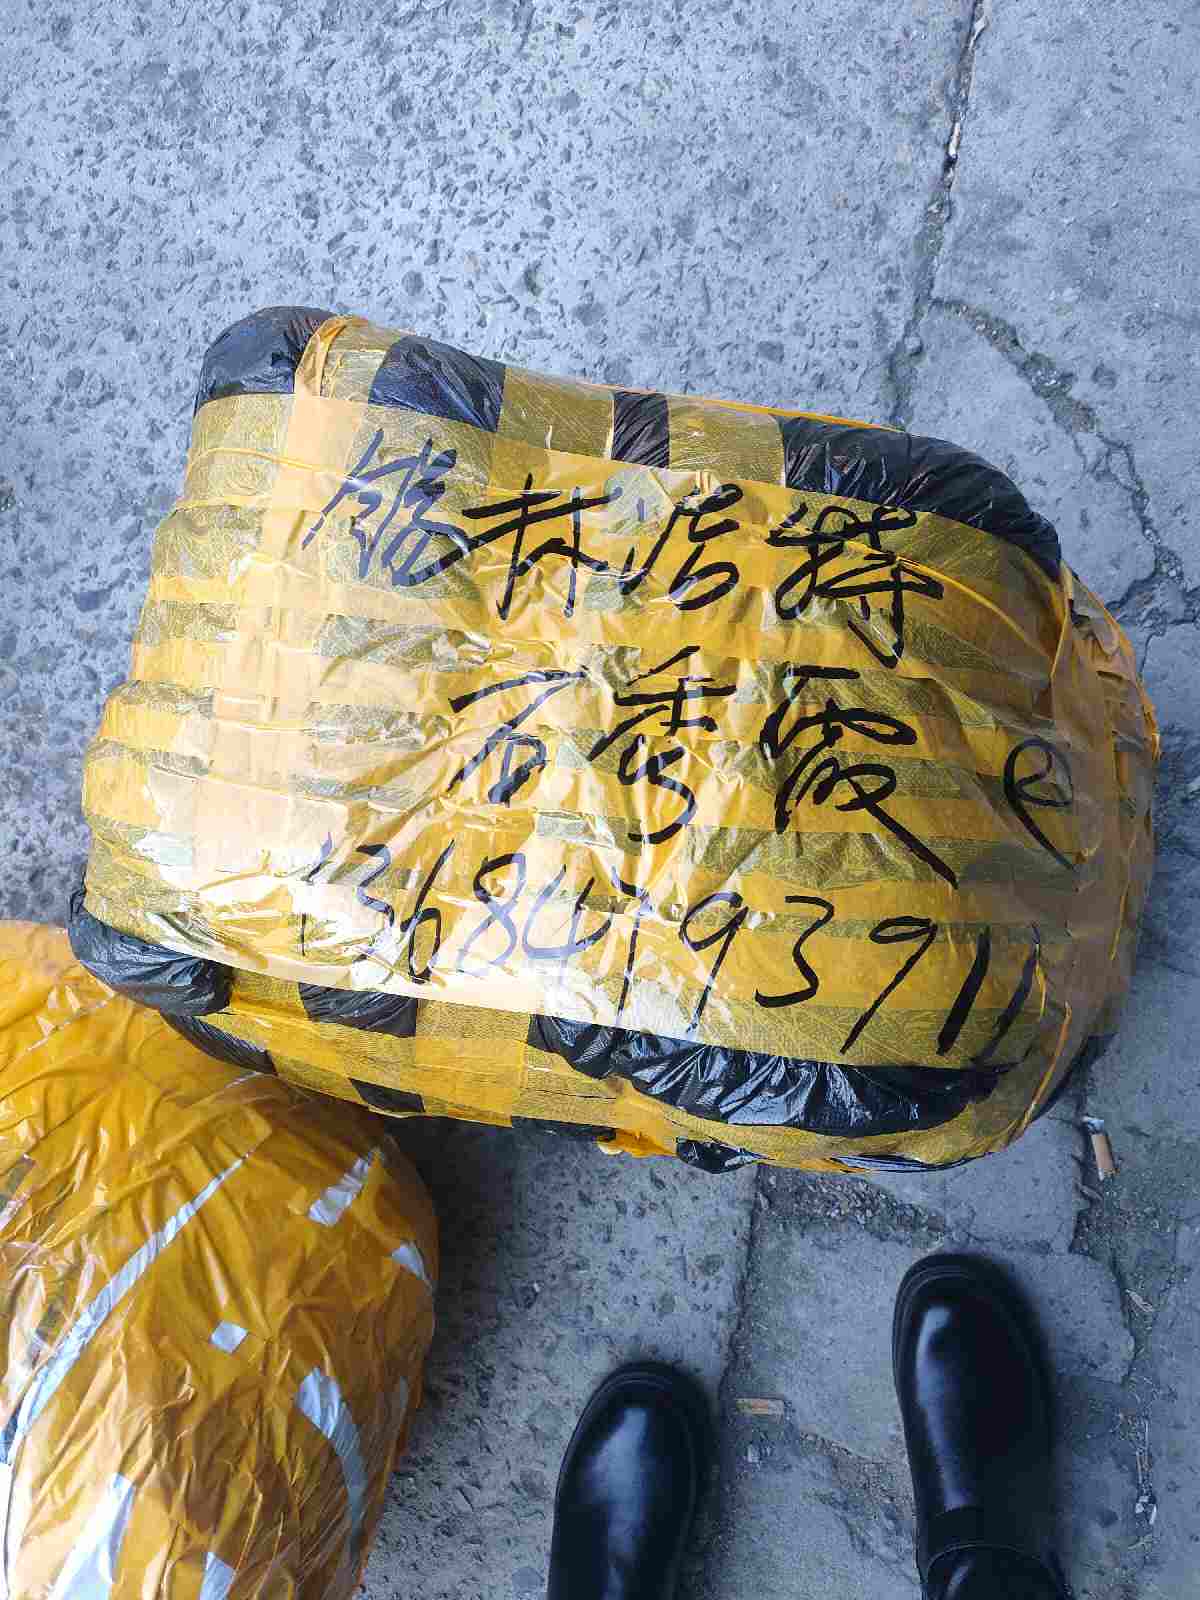 锡林浩特
方秀霞
13684793911